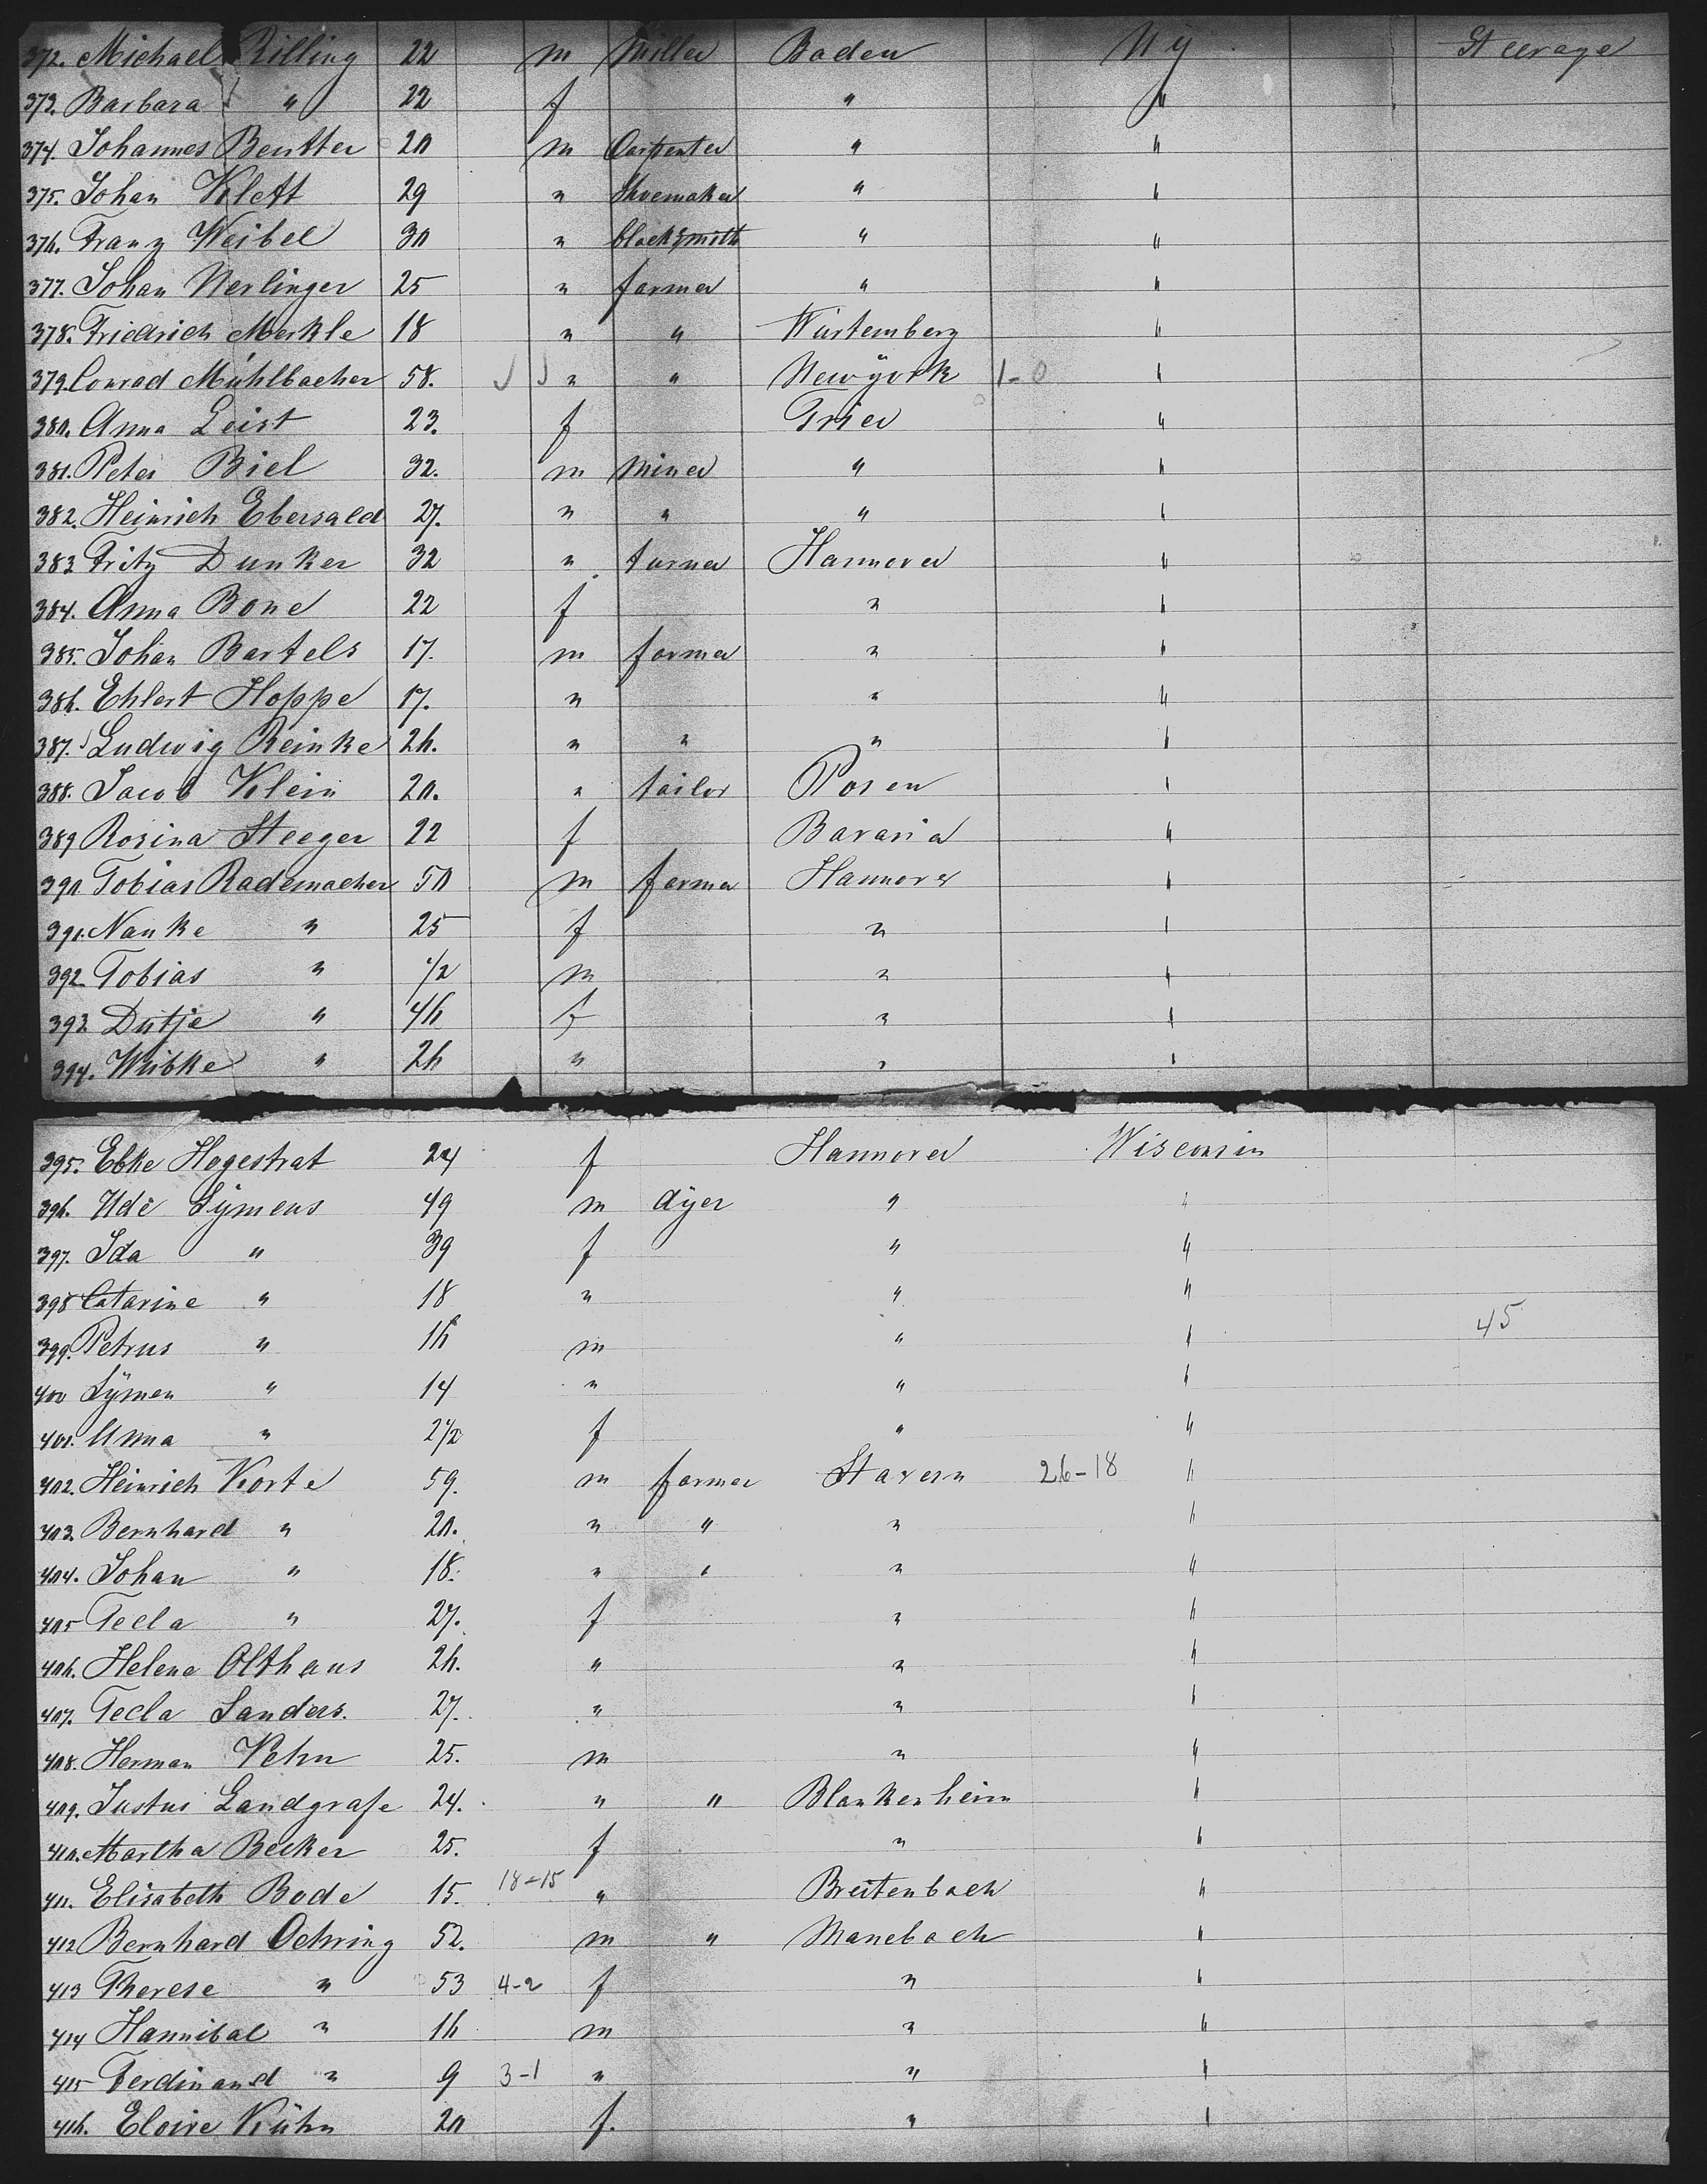 372. Michael Rilling 22 m Miller Baden N y Steerage
373. Barbara " 22 f " "
374. Johannes Beutter 20 m Carpenter " "
375. Johan Klett 29 " Shoemaker " "
376. Franz Weibel 30 " blacksmith " "
377. Johan Nerlinger 25 " farmer " "
378. Friedrich Merkle 18 " " Würtemberg "
379. Conrad Mühlbacher 58. " " Newÿork 1-0 "
380. Anna Leist 23. f Trier "
381. Peter Biel 32. m miner " "
382. Heinrich Ebersald 27. " " " "
383 Fritz Dunker 32 " turner Hannover "
384. Anna Bone 22 f " "
385. Johan Bartels 17. m farmer " "
386. Ehlert Hoppe 17. " " "
387. Ludwig Reinke 26. " " " "
388. Jacob Klein 20. " tailor Posen "
389 Rosina Steeger 22 f Bavaria "
390 Tobias Rademacher 50 m farmer Hannover "
391. Nanke " 25 f " "
392. Tobias " 1/2 m " "
393 Dutje " 46 f " "
394. Wübke " 26 " " "
395. Ebke Hogestrat 24 f Hannover Wisconsin
396. Ude Sÿmens 49 m dÿer " "
397. Ida " 39 f " "
398 Catarine " 18 " " "
399. Petrus " 16 m " " 45
400 Sÿmen " 14 " " "
401. Anna " 2 1/2 f " "
402. Heinrich Korte 59. m farmer Stavern 26-18 "
403. Bernhard " 20. " " " "
404. Johan " 18. " " " "
405 Tecla " 27. f " "
406. Helena Olthaus 26. " " "
407. Tecla Sanders. 27. " " "
408. Herman Vehn 25. m " "
409. Justus Landgrafe 24. " " Blankenheim "
410. Martha Becker 25. f " "
411. Elisabeth Bode 15. 18-15 " Breitenbach "
412 Bernhard Oehring 52. m " Manebach "
413 Therese " 53 4-2 f " "
414 Hannibal " 16 m " "
415 Ferdinand " 9 3-1 " " "
416. Eloise Kühn 20 f. " "